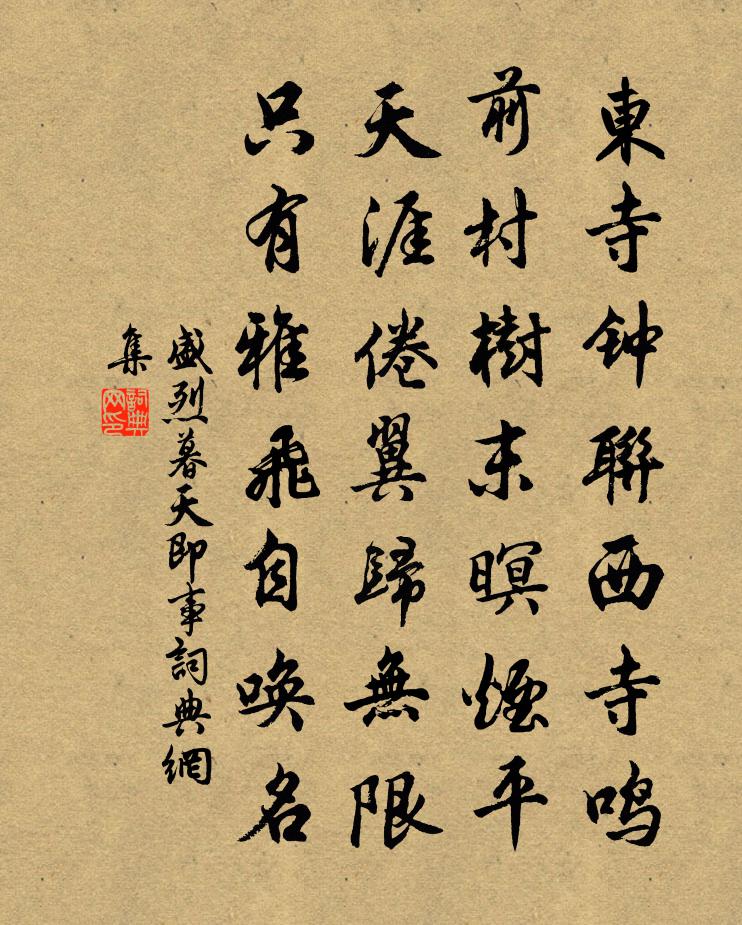 東寺钟聯西寺鸣
前村樹末暝煙平
天涯倦翼歸無限
只有雅飛自唤名
盛烈暮天即事詞典網
集
詞典
网印